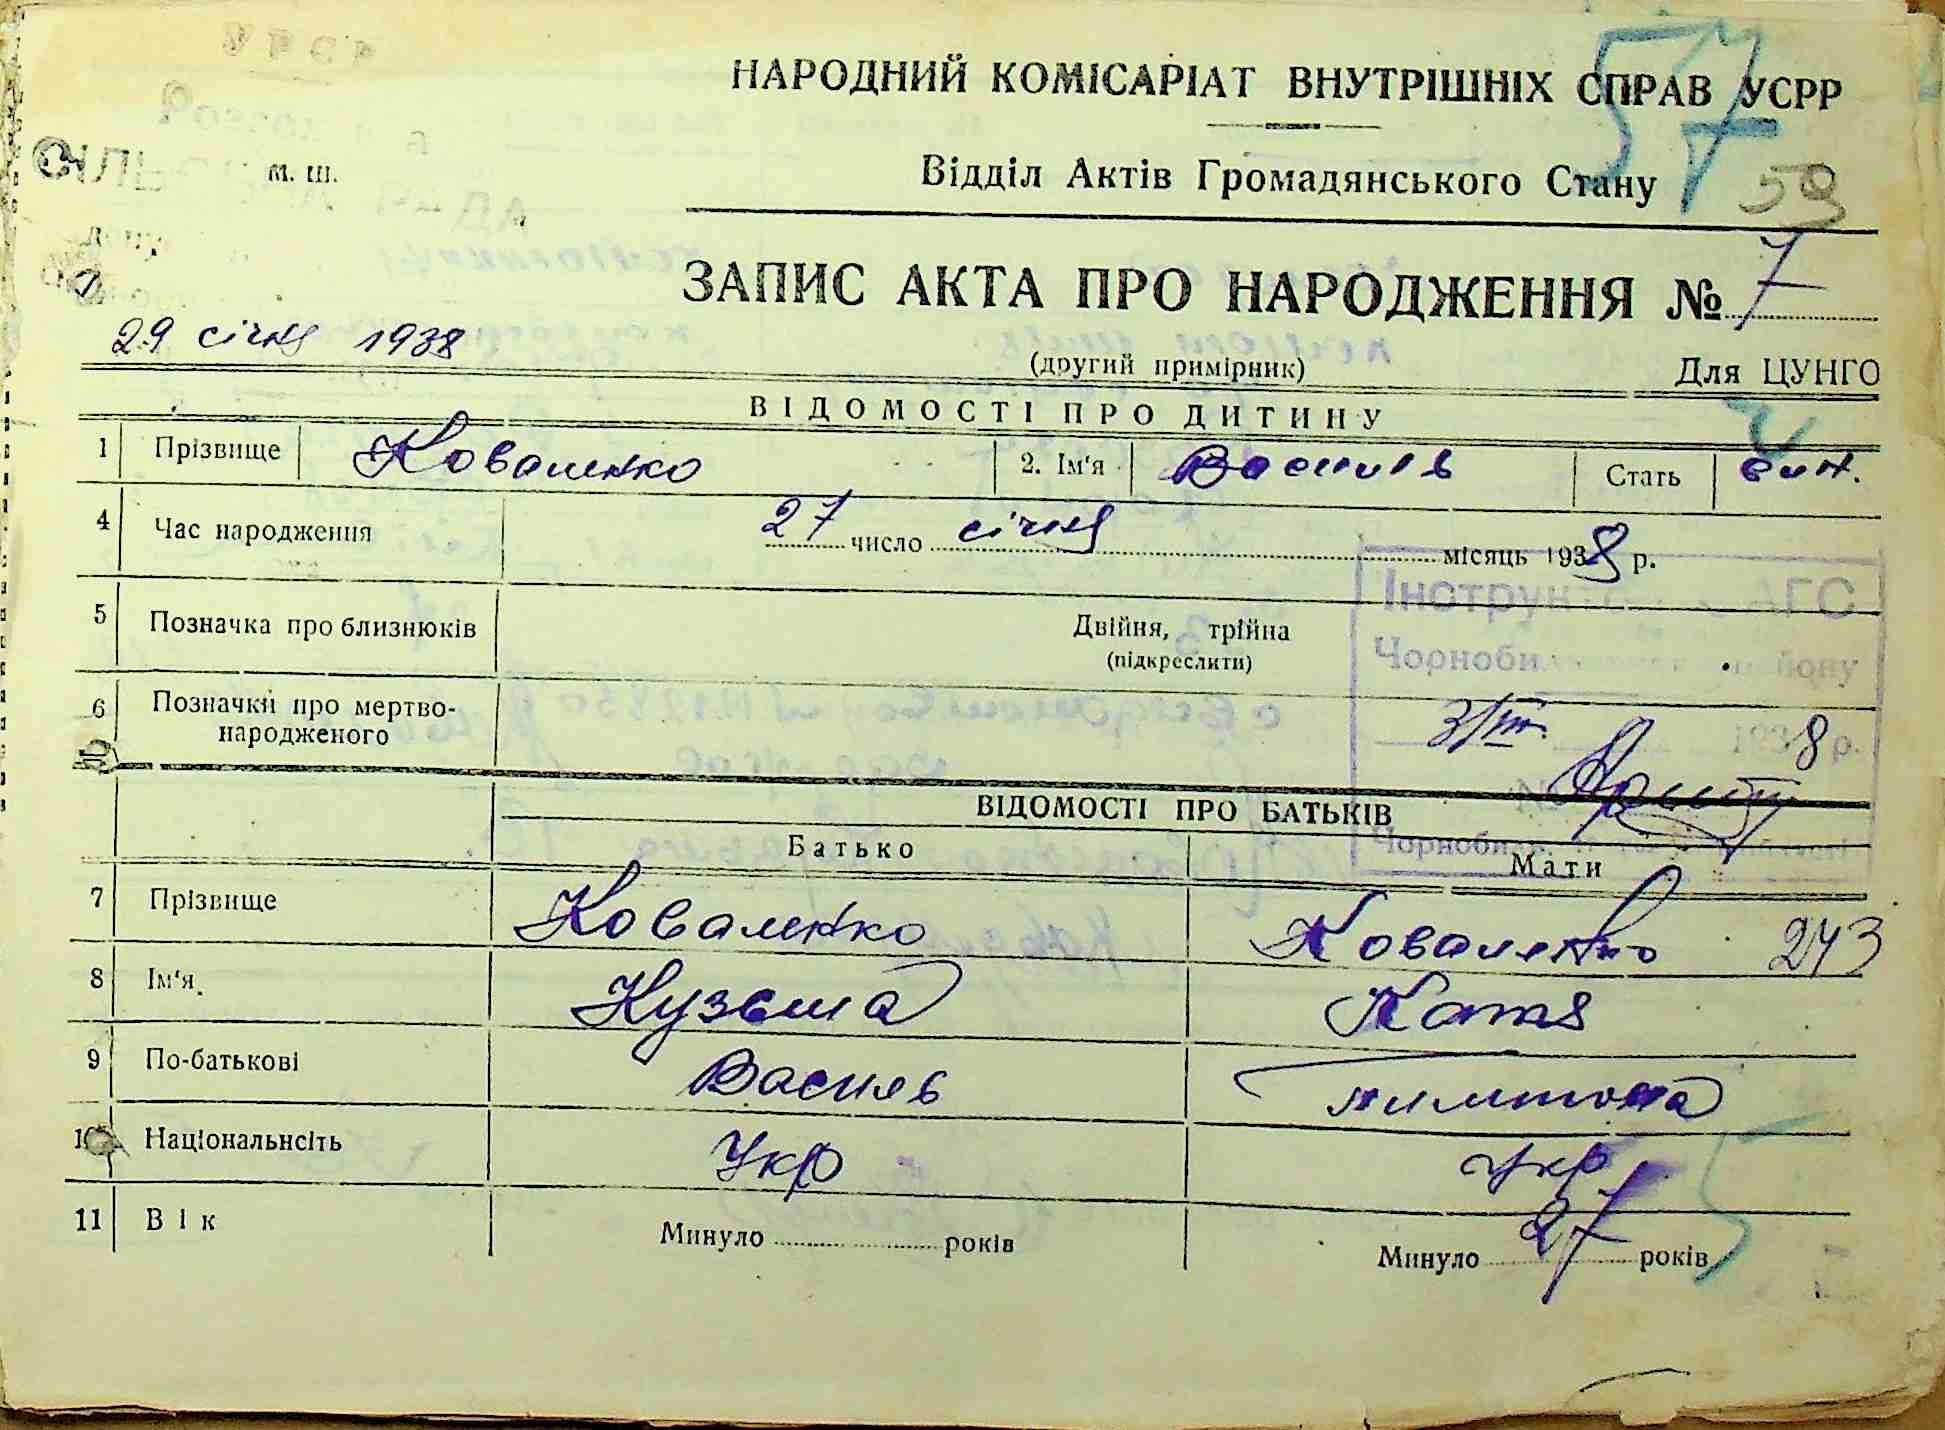 УРСР
НАРОДНИЙ КОМІСАРІАТ ВНУТРІШНІХ СПРАВ УСРР
57
м. ш.
Відділ Актів Громадянського Стану
59
ЗАПИС АКТА ПРО НАРОДЖЕННЯ № 7
29 січня 1938
(другий примірник) Для ЦУНГО
ВІДОМОСТІ ПРО ДИТИНУ
1 Прізвище Коваленко 2. Ім'я Василь Стать син.
4 Час народження 27 число січня місяць 1938 р.
5 Позначка про близнюків Двійня, трійна
(підкреслити)
6 Позначки про мертво-
народженого
АГС
3/III 1938 р.
ВІДОМОСТІ ПРО БАТЬКІВ
Батько Мати
7 Прізвище Коваленко Коваленко 273
8 Ім'я Кузьма Катя
9 По-батькові Василь
10 Національнсіть Укр Укр
11 Вік Минуло років Минуло 27 років